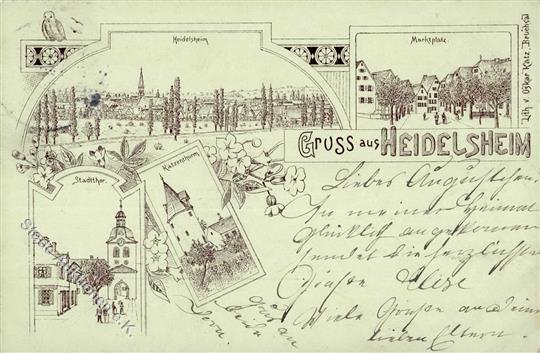 Heidelsheim
Marktplatz.
Lith. v. Oskar Katz, Bruchsal
GRUSS aus HEIDELSHEIM
Stadtthor.
Katzenthurm
Liebes Augustchen.
In meiner Heimat
glücklich angekommen
sendet die herzlichsten
Grüsse
Viele Grüsse an Deine
lieben Eltern.